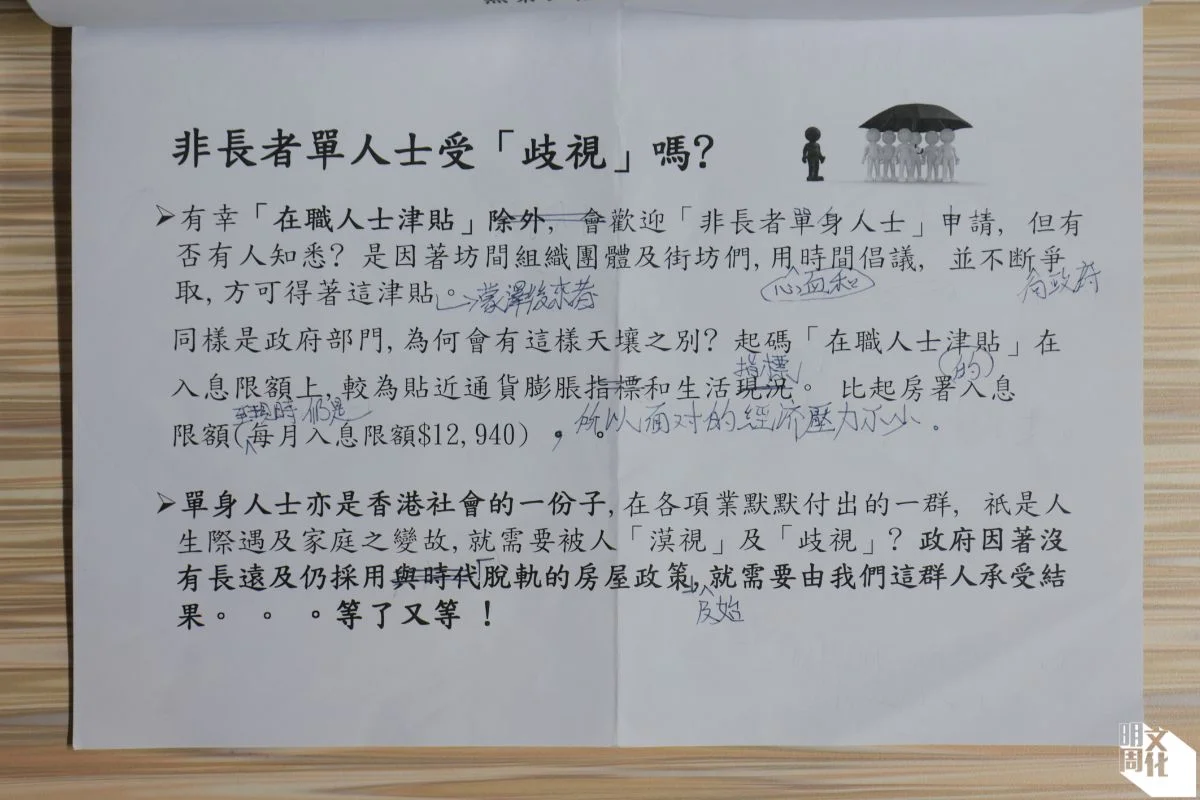 非長者單人士受「歧視」嗎?
➢有幸「在職人士津貼」除外, 會歡迎「非長者單身人士」申請, 但有
否有人知悉? 是因著坊間組織團體及街坊們, 用時間倡議, 並不斷爭
心血和
向政府
取, 方可得著這津貼。
蒙澤後來者
同樣是政府部門, 為何會有這樣天壤之別? 起碼「在職人士津貼」在
指標
的
入息限額上, 較為貼近通貨膨脹指標和生活現況。 比起房署入息
現時仍是
所以面对的經济壓力不小.
限額(每月入息限額$12,940) , 。
➢單身人士亦是香港社會的一份子, 在各項業默默付出的一群, 祇是人
生際遇及家庭之變故, 就需要被人「漠視」及「歧視」? 政府因著沒
有長遠及仍採用與時代脫軌的房屋政策, 就需要由我們這群人承受結
果。 。 。等了又等 !
明周文化